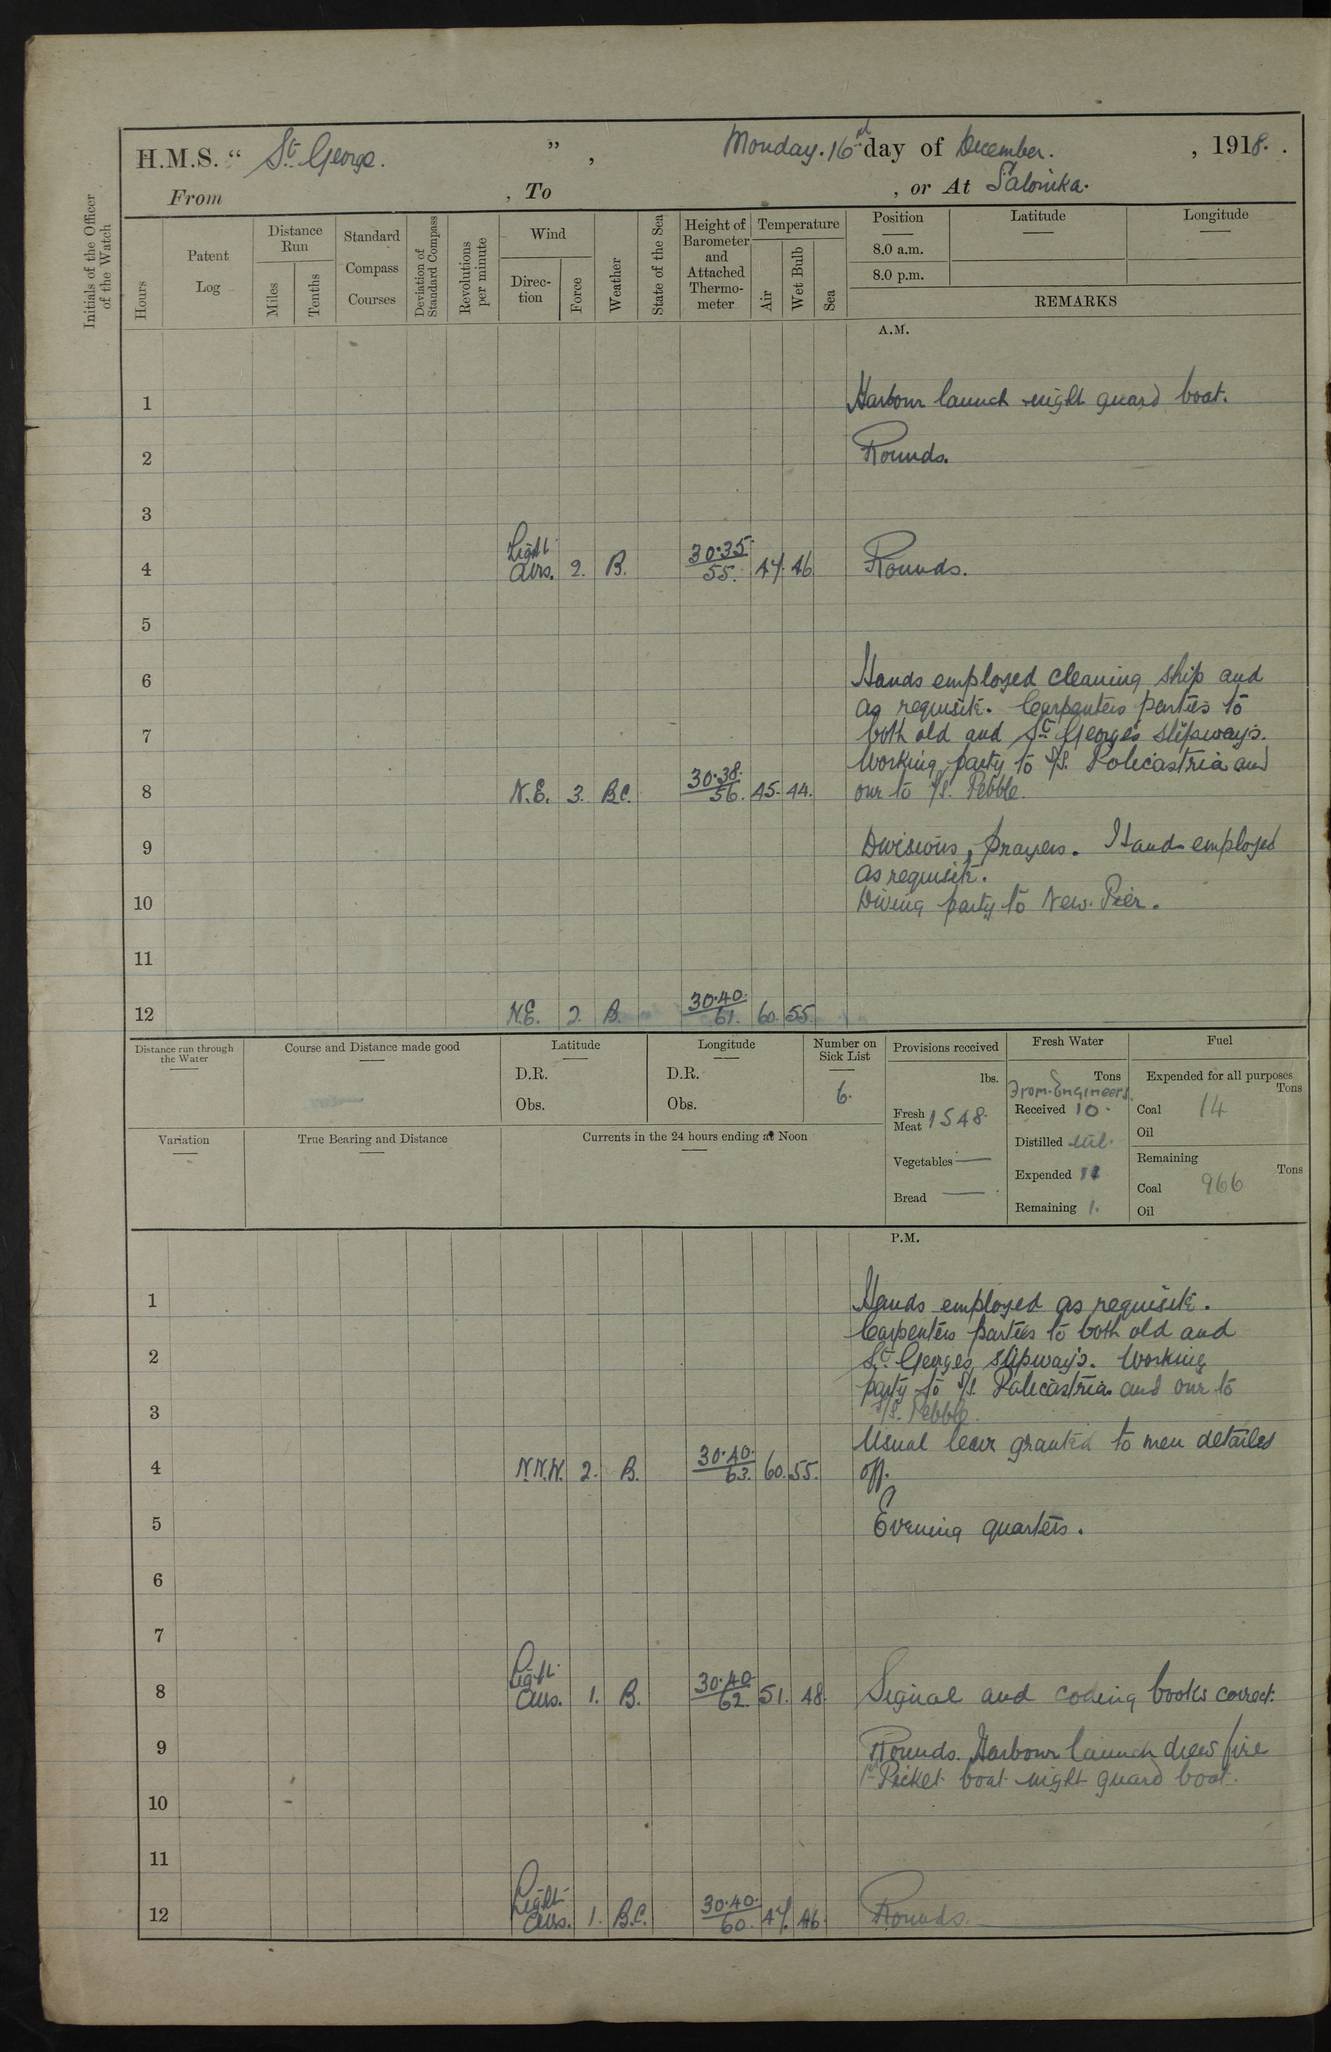 H.M.S. “ St. George. ” , Monday. 16 day of December. , 1918. .
From , To , or At Salonika.
Initials of the Officer of the Watch
Hours
Patent Log
Distance Run
Miles
Tenths
Standard Compass Courses
Deviation of Standard Compass
Revolutions per minute
Wind
Direction
Force
Weather
State of the Sea
Height of Barometer and Attached Thermometer
Temperature
Air
Wet Bulb
Sea
Position Latitude Longitude
8.0 a.m.
8.0 p.m.
REMARKS
A.M.
1 Harbour launch night guard boat.
2 Rounds.
3
4 Light airs. 2. B. 30.35 55. 47. 46 Rounds.
5
6 Hands employed cleaning ship and
as requisite. Carpenters parties to
7 both old and St. George's slipways.
Working party to S/S. Policastria and
8 N.E. 3. BC. 30.38. 56. 45. 44. one to S/S. Pebble.
9 Divisions, prayers. Hands employed
as requisite.
10 Diving party to New. Pier.
11
12 N.E. 2. B. 30.40. 61. 60. 55.
Distance run through the Water
Course and Distance made good
Latitude
D.R.
Obs.
Longitude
D.R.
Obs.
Number on Sick List
6.
Provisions received
lbs.
Fresh Meat 1548.
Vegetables —
Bread —
Fresh Water
Tons
From Engineers.
Received 10.
Distilled nil.
Expended 11
Remaining 1.
Fuel
Expended for all purposes
Tons
Coal 14
Oil
Remaining
Tons
Coal 966
Oil
Variation
True Bearing and Distance
Currents in the 24 hours ending at Noon
P.M.
1 Hands employed as requisite.
Carpenters parties to both old and
2 St. Georges slipways. Working
party to S/S. Policastria and one to
3 S/S. Pebble.
Usual leave granted to men detailed
4 N.N.W. 2. B. 30.40. 63. 60. 55. off.
5 Evening quarters.
6
7
8 Light airs. 1. B. 30.40 62. 51. 48. Signal and coding books correct.
9 Rounds. Harbour launch fire
1st Picket boat night guard boat.
10
11
12 Light airs. 1. B.C. 30.40. 60. 47. 46. Rounds.